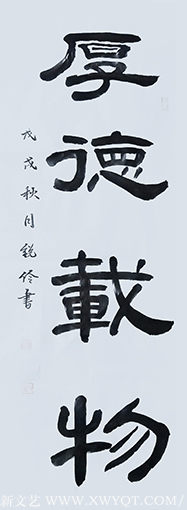 厚德載物
戊戌秋月銳伶書
新文艺 www.XWYQT.COM/